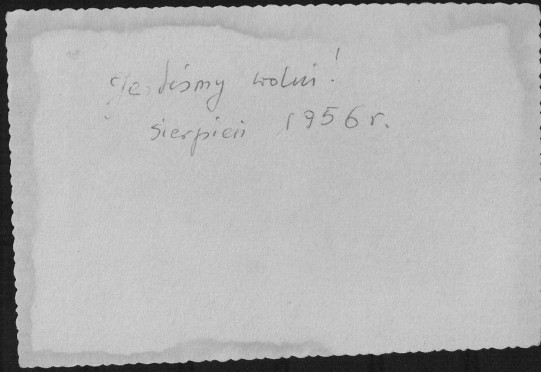 Jesteśmy wolni!
sierpień 1956 r.